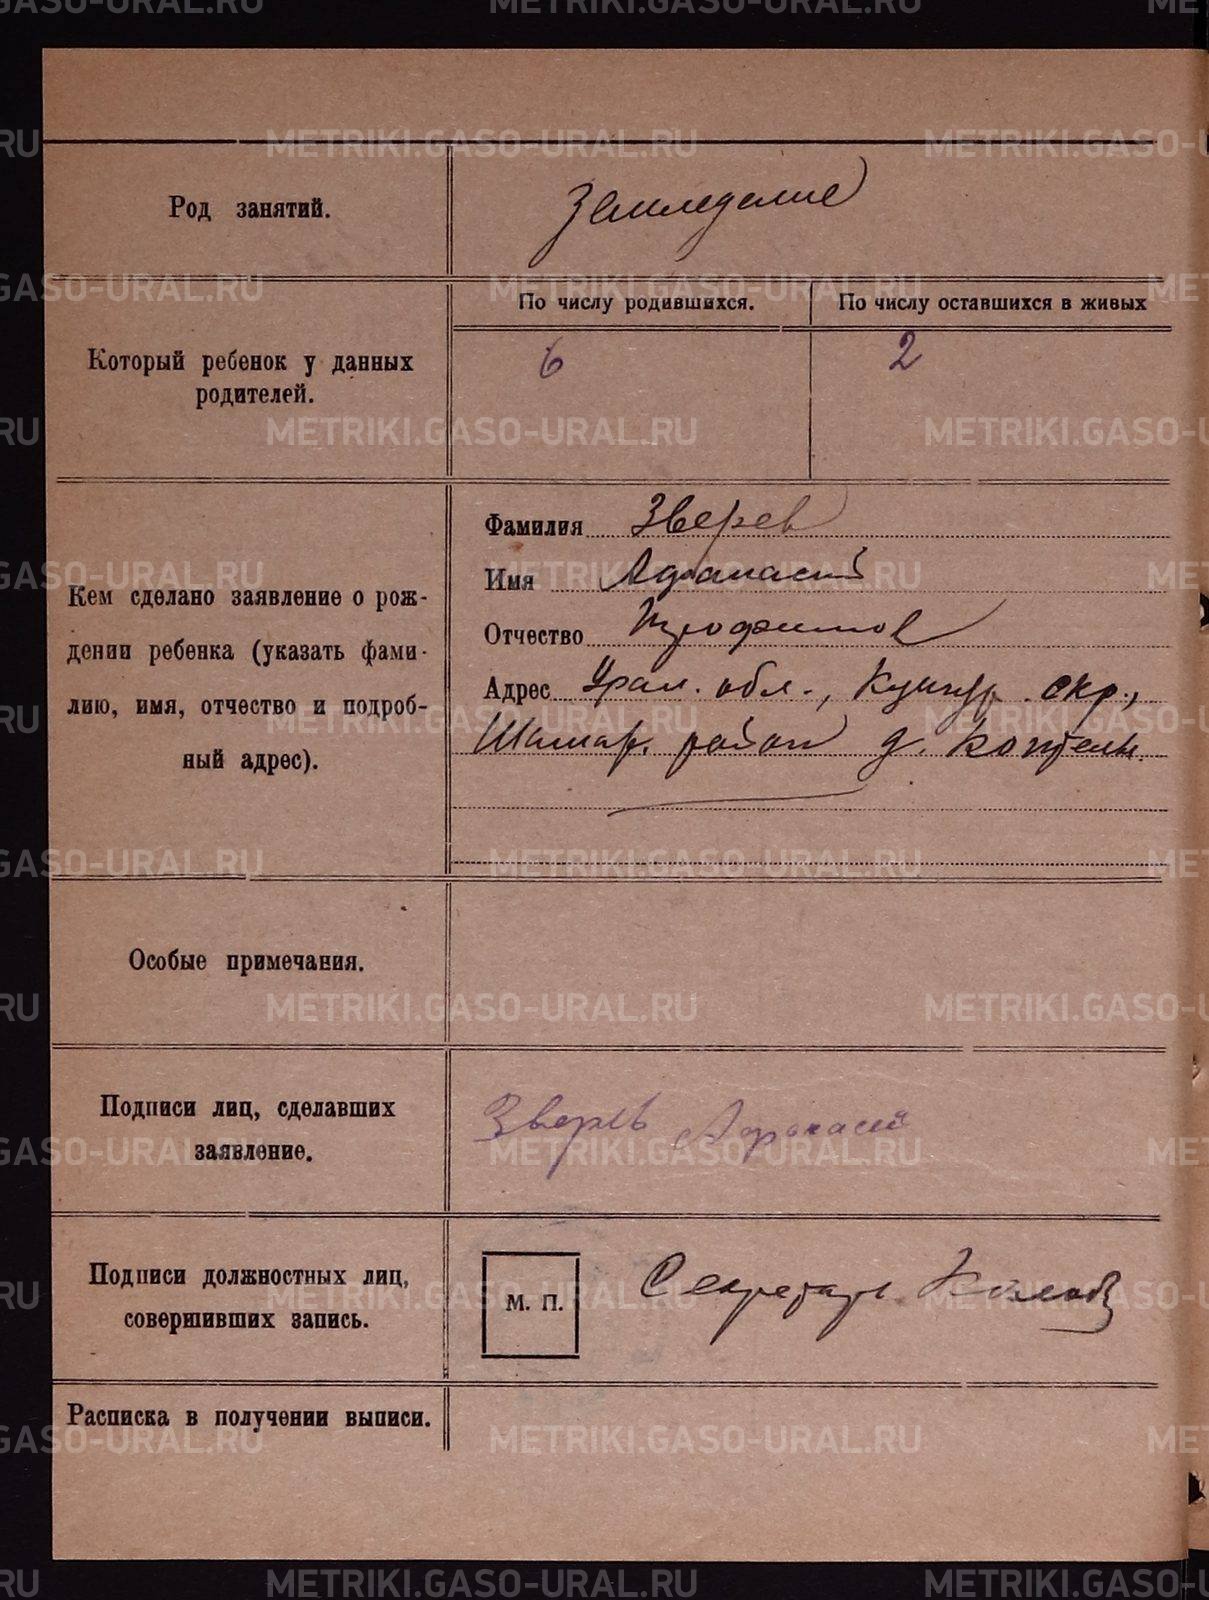 Род занятий.
Земледелие
Который ребенок у данных
родителей.
По числу родившихся.
По числу оставшихся в живых
6
2
Кем сделано заявление о рож-
дении ребенка (указать фами-
лию, имя, отчество и подроб-
ный адрес).
Фамилия Зверев
Имя Афанасий
Отчество Трофимов
Адрес Урал. обл., Кунгур. окр.,
Шамар. район д.
Особые примечания.
Подписи лиц, сделавших
заявление.
Зверев Афанасий
Подписи должностных лиц,
совершивших запись.
М. П.
Секретарь
Расписка в получении выписи.
METRIKI.GASO-URAL.RU